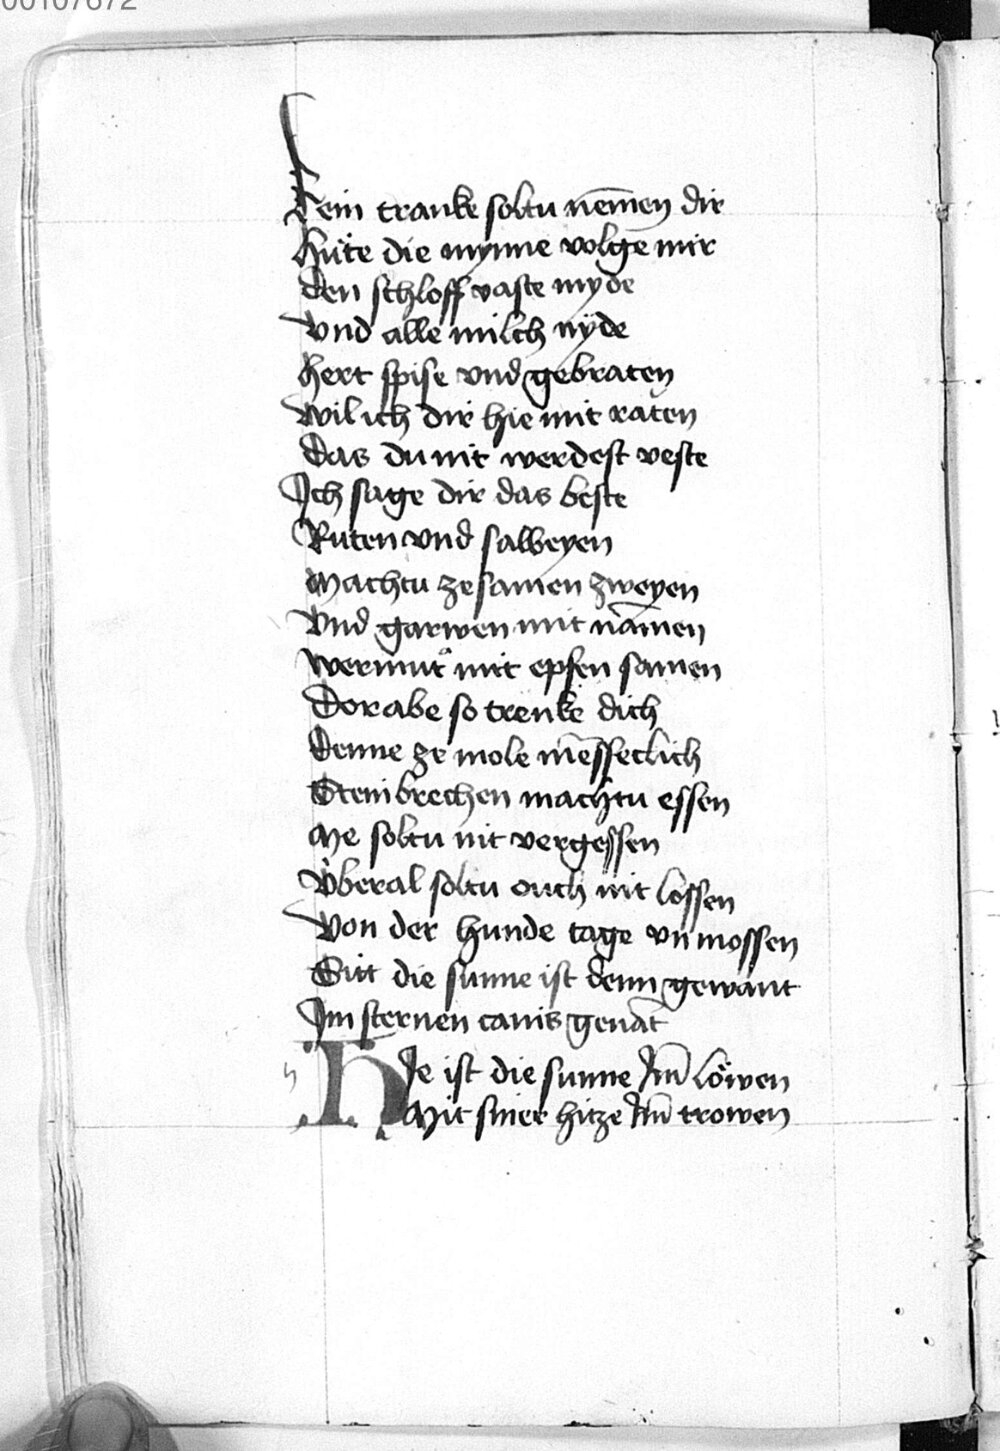 00107672
Kein tranke soltu nēmen dir
Hüte die mynne volge mir
Den schloff vaste myde
Vnd alle milch nyde
Hert spise vnd gebraten
Wil ich dir hie mit raten
Das du nit werdest veste
Ich sage dir das beste
Ruten vnd salbeyen
Machtu ze samen zweyen
Vnd garwen mit namen
Wermut mit epfen samen
Dor abe so trenke dich
Denne ze mole messeclich
Steinbrechen machtu essen
Me soltu nit vergessen
Vberal soltu ouch nit lossen
Von der hunde tage vn̄ mossen
Sitt die sunne ist denn gewant
Im sternen canis genāt
HJe ist die sunne Im̄ löwen
Mit siner hitze Im̄ trowen